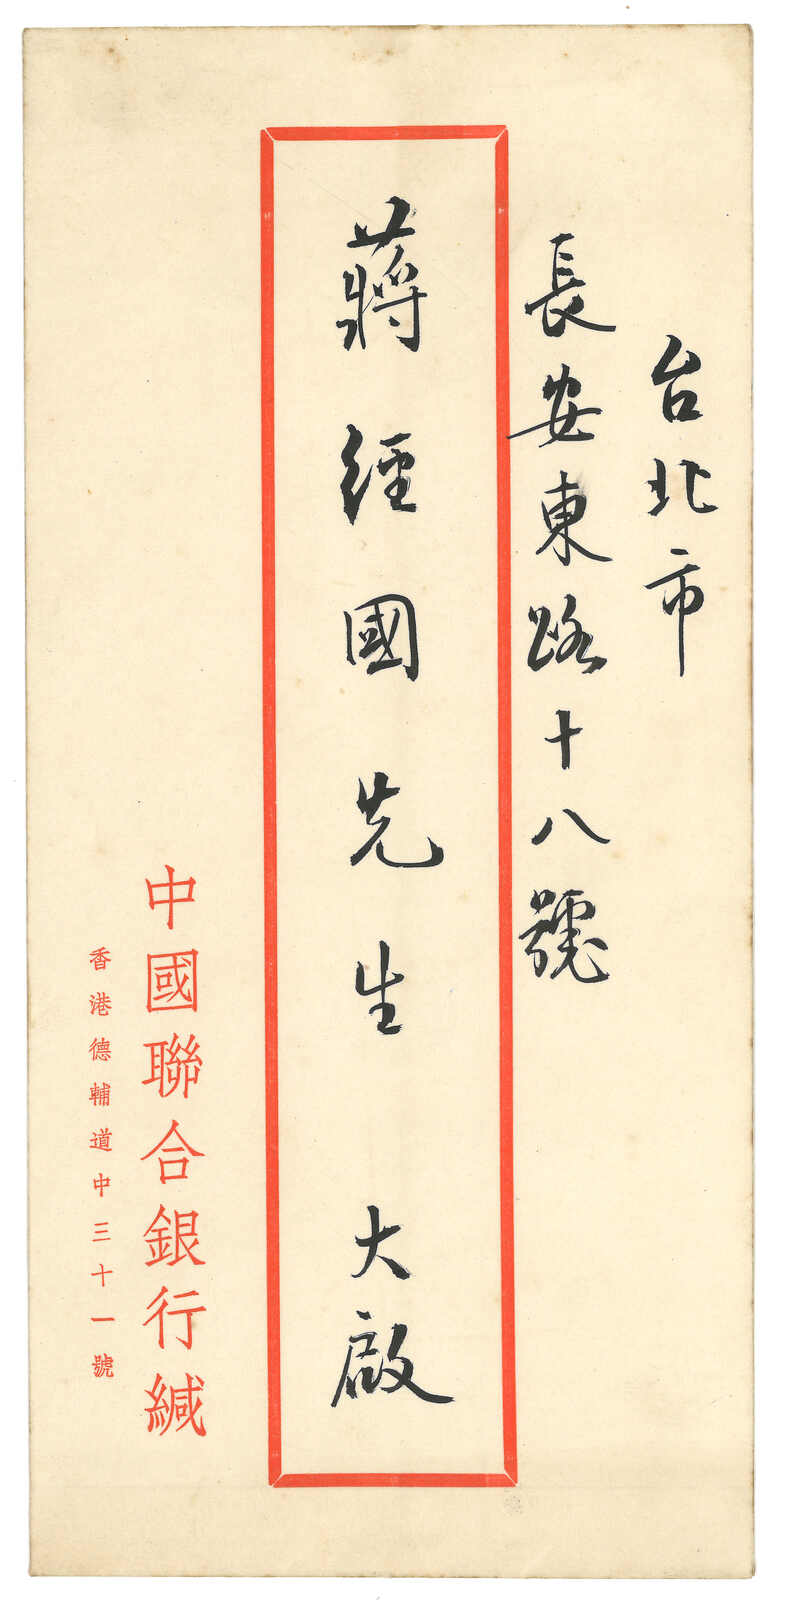 台北市
長安東路十八號
蔣經國先生 大啟
中國聯合銀行緘
香港德輔道中三十一號